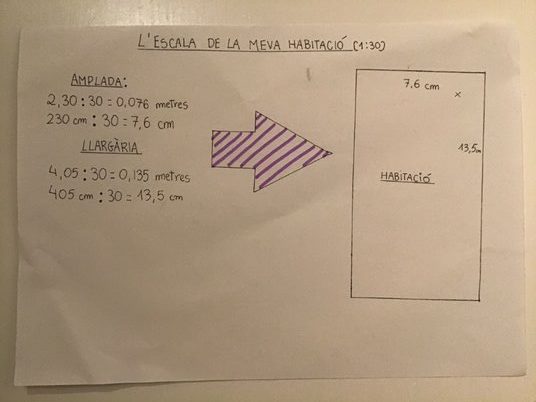 L'ESCALA DE LA MEVA HABITACIÓ (1:30)
AMPLADA:
2,30:30=0,076 metres
230 cm:30=7,6 cm
LLARGÀRIA
4,05:30=0,135 metres
405 cm:30=13,5 cm
7,6 cm
x
13,5cm
HABITACIÓ